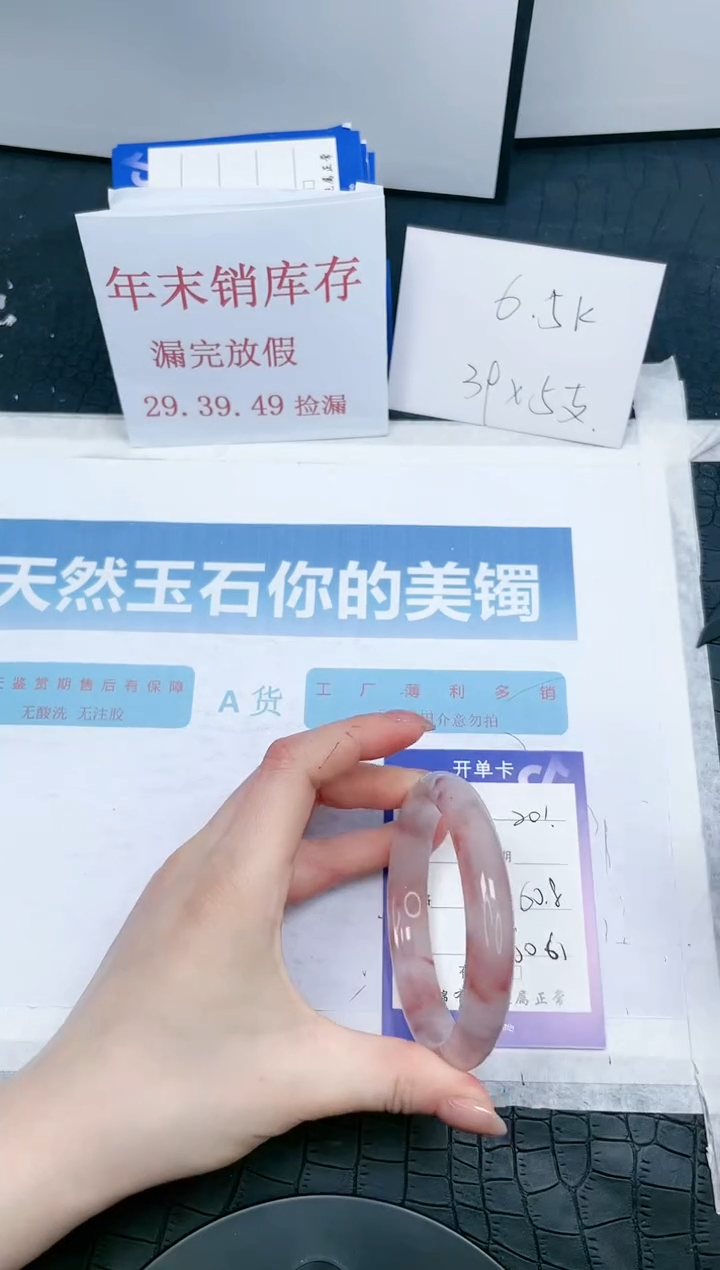 年末销库存
漏完放假
29.39.49 捡漏
6.5k
39x5支.
天然玉石你的美镯
鉴赏期售后有保障
无酸洗 无注胶
A 货
工厂薄利多销
介意勿拍
开单卡
201.
期
60.8
属正常